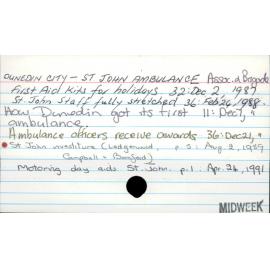 DUNEDIN CITY - ST JOHN AMBULANCE Assoc. & Brigade
First Aid Kits for holidays 32: Dec 2, 1987
St. John Staff fully stretched 36: Feb 24, 1988.
How Dunedin got its first 11: Dec 7, "
ambulance.
Ambulance officers receive awards 36: Dec 21, "
St John investiture (Ledgerwood, p. 5: Aug 2, 1989
Campbell &
Motoring day aids St. John. p. 1. Apr. 26, 1991
MIDWEEK